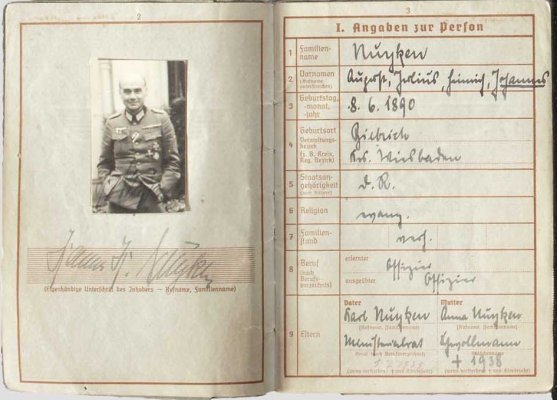 2
(Eigenhändige Unterschrift des Inhabers — Rufname, Familienname)
3
I. Angaben zur Person
1 Familien-
name
Nuyken
2 Vornamen
(Rufname
unterstreichen)
August, Julius, Heinrich, Johannes
3 Geburtstag,
-monat,
-jahr
8. 6. 1890
4 Geburtsort
Verwaltungs-
bezirk
(z. B. Kreis,
Reg.-Bezirk)
Biebrich
Krs. Wiesbaden
5 Staatsan-
gehörigkeit
(auch frühere)
d. R.
6 Religion
evang.
7 Familien-
stand
verh.
8 Beruf
(nach
Berufs-
verzeichnis)
erlernter
Offizier
ausgeübter
Offizier
9 Eltern
Vater Mutter
Karl Nuyken Anna Nuyken
(Rufname, Familienname) (Rufname, Familienname)
Ministerialrat
(Beruf nach Berufsverzeichnis) (Mädchenname)
† 1938
(wenn verstorben: † und Sterbejahr) (wenn verstorben: † und Sterbejahr)